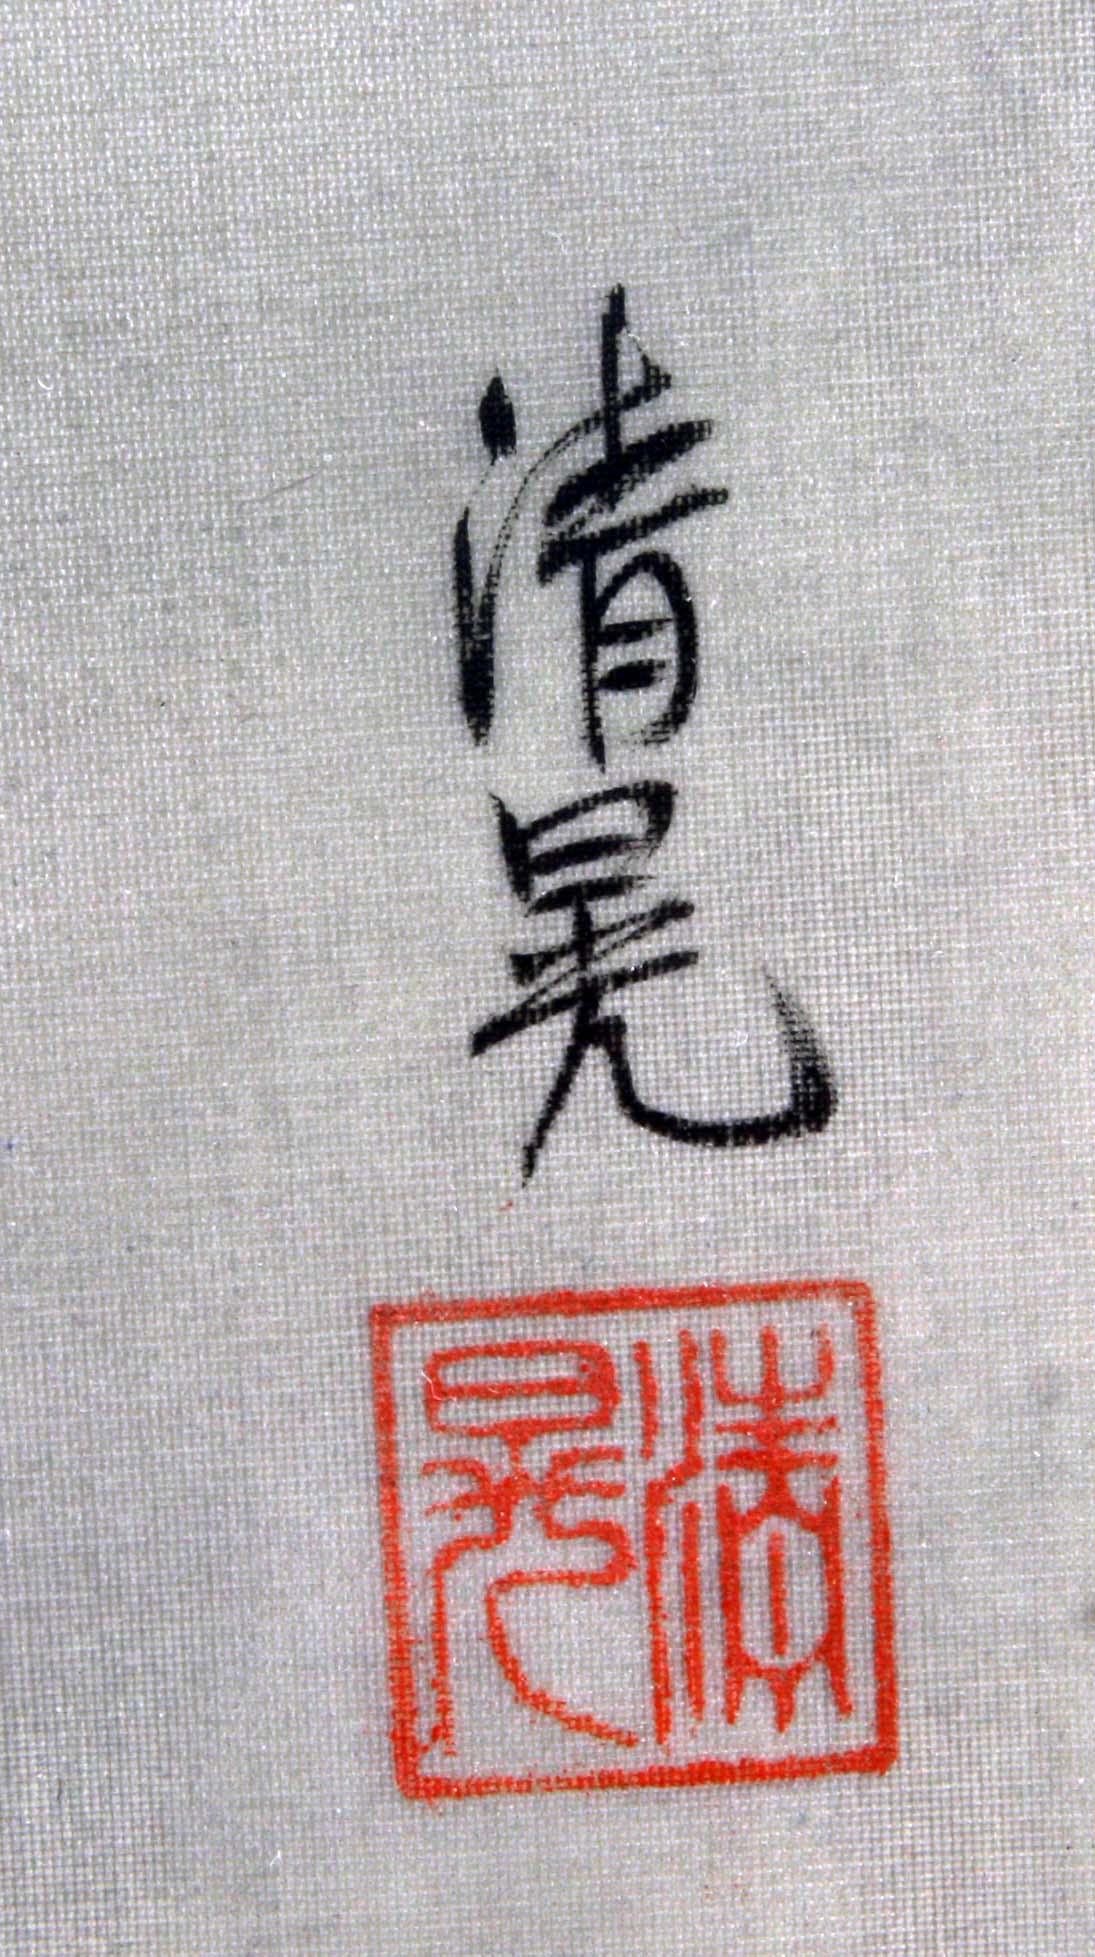 清晃
清晃